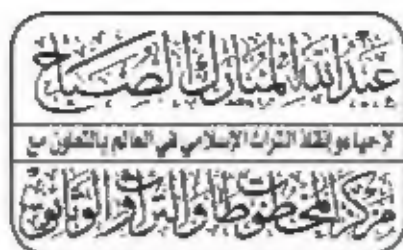 عبدالله المبارك الصباح
لإحياء وإنقاذ التراث الإسلامي في العالم بالتعاون مع
مركز المخطوطات والتراث والوثائق